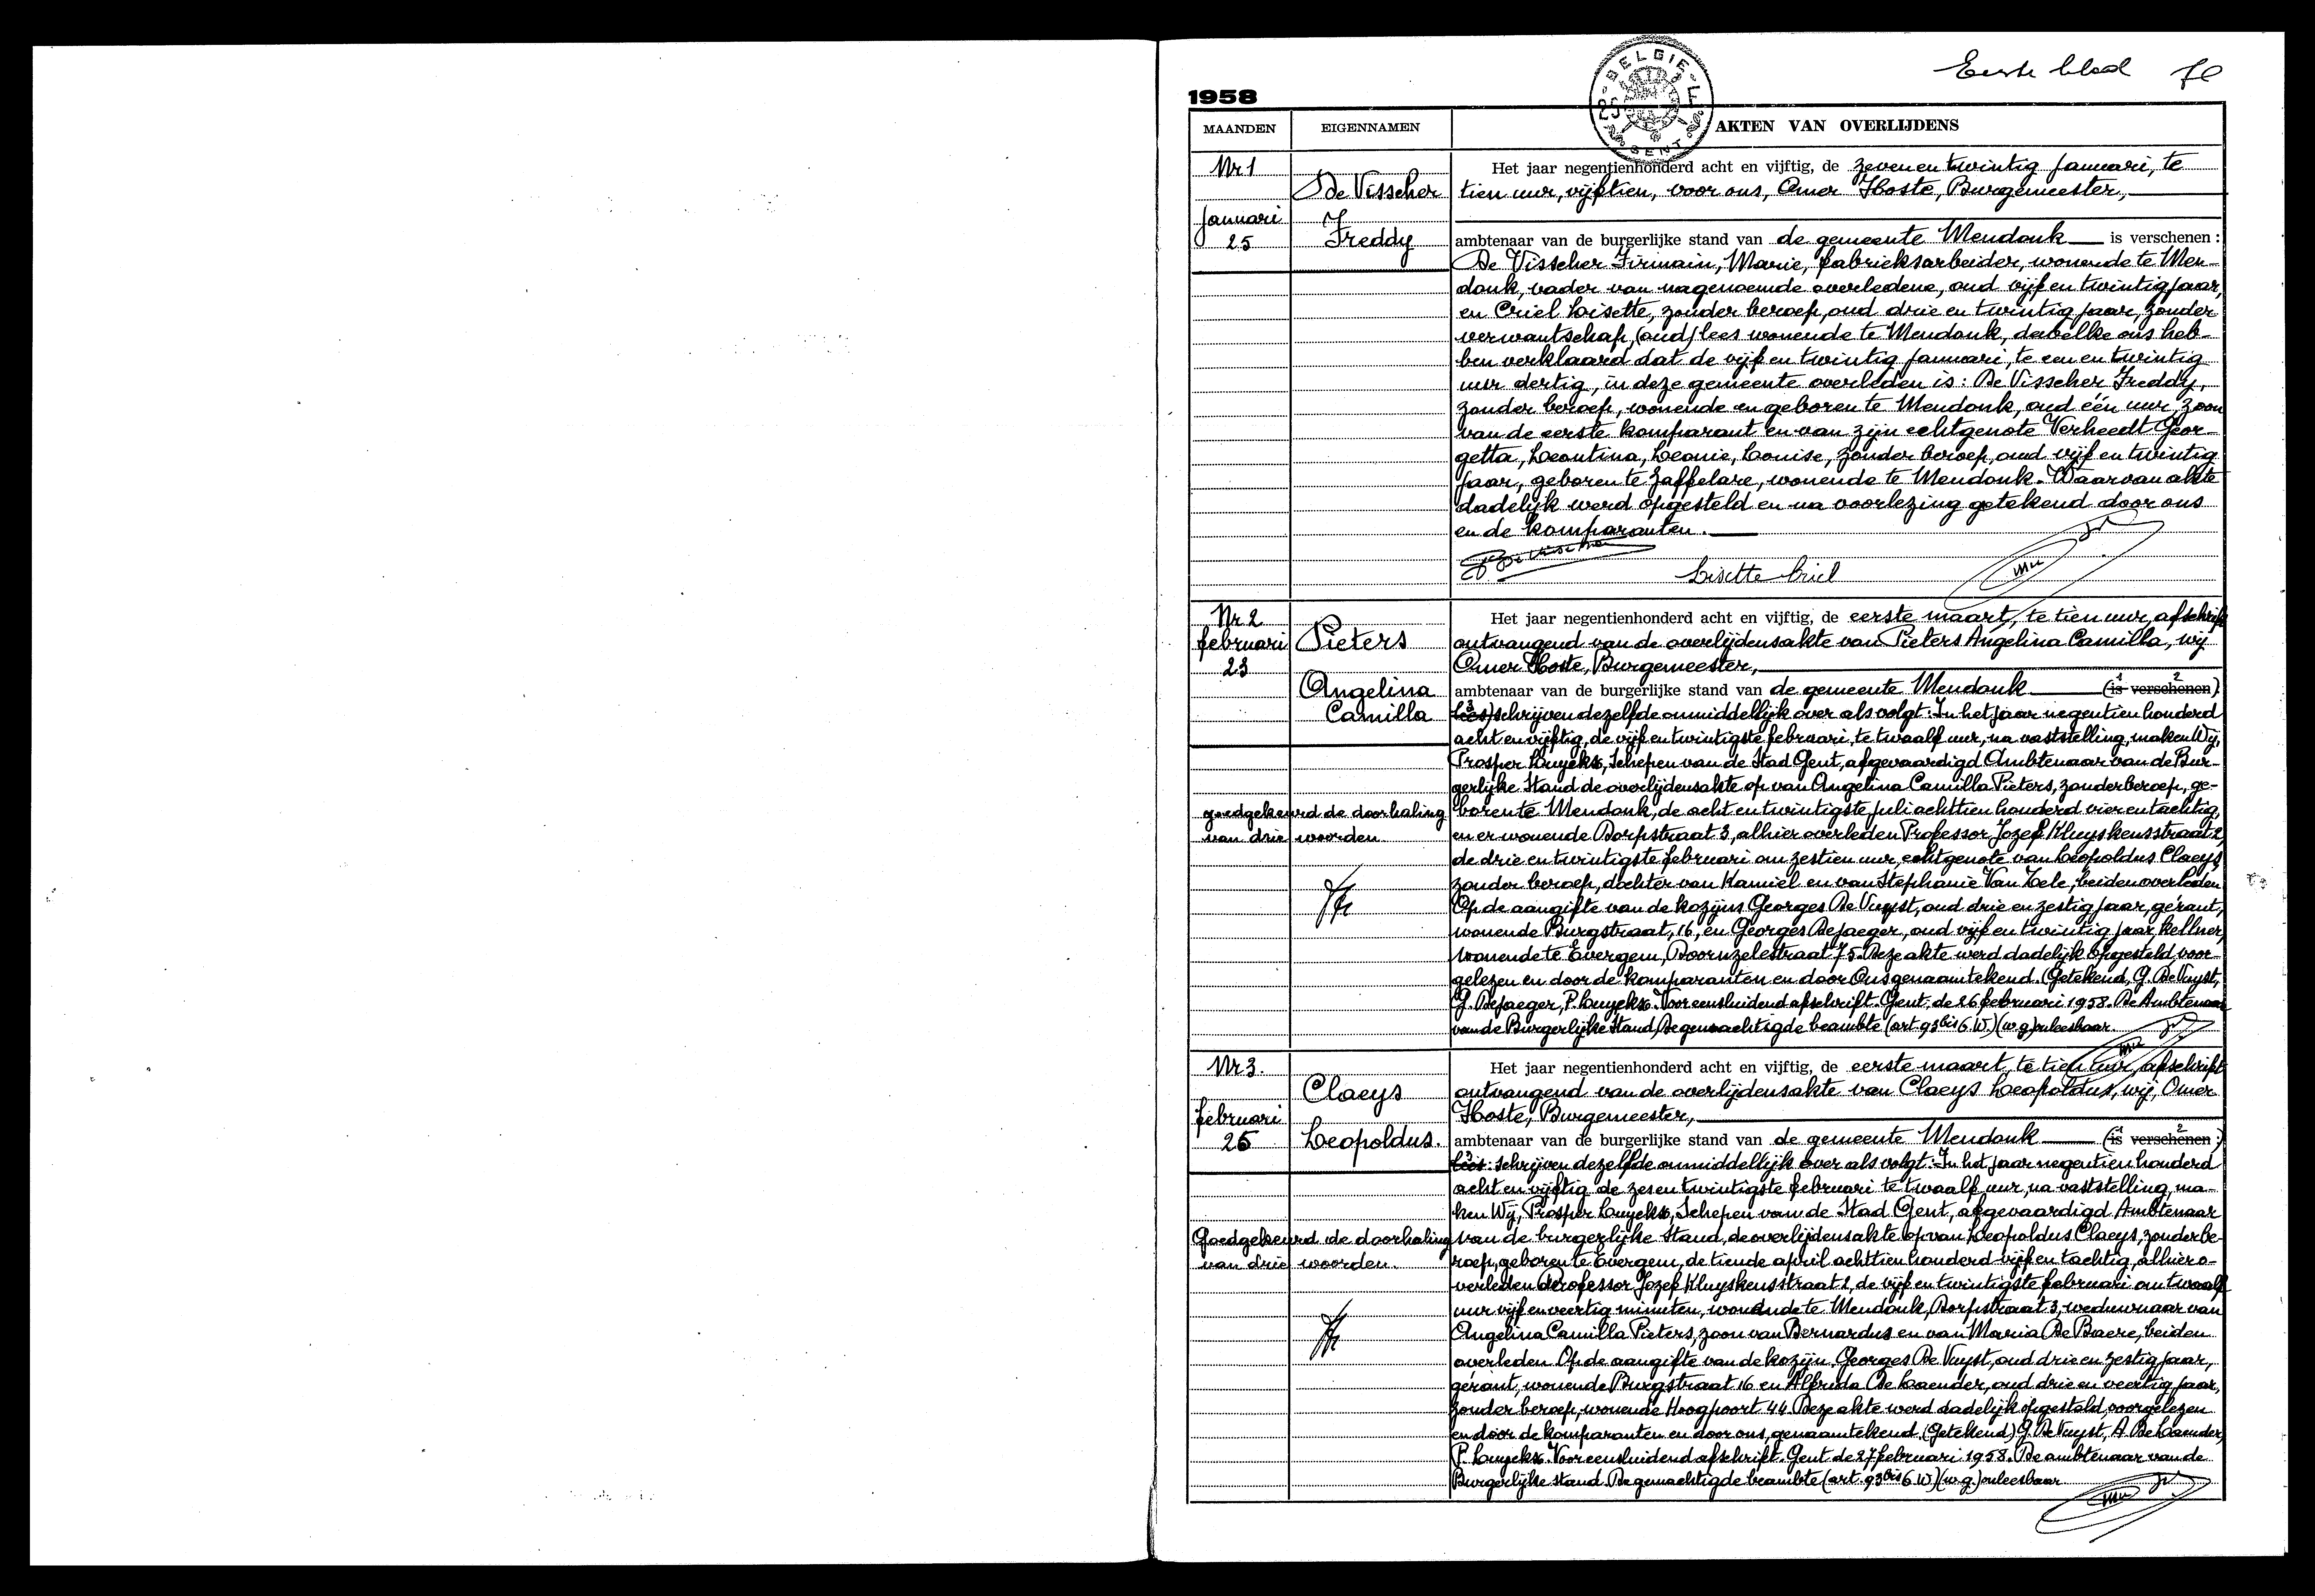 Eerste blad
1958
BELGIE
GENT
MAANDEN EIGENNAMEN AKTEN VAN OVERLIJDENS
Nr 1
Januari
25
De Visscher
Freddy
Het jaar negentienhonderd acht en vijftig, de zeven en twintig Januari, te
tien uur, vijftien, voor ons, Omer Hoste, Burgemeester,
ambtenaar van de burgerlijke stand van de gemeente Mendonk is verschenen :
De Visscher Firmain, Marie, fabrieksarbeider, wonende te Men-
donk, vader van nagenoemde overledene, oud vijf en twintig jaar,
en Criel Lisette, zonder beroep, oud drie en twintig jaar, zonder
verwantschap, (oud) lees wonende te Mendonk, dewelke ons heb-
ben verklaard dat de vijf en twintig Januari, te een en twintig
uur dertig, in deze gemeente overleden is : De Visscher Freddy,
zonder beroep, wonende en geboren te Mendonk, oud één uur, zoon
van de eerste komparant en van zijn echtgenote Verheedt Geor-
getta, Leontina, Leonie, Louise, zonder beroep, oud vijf en twintig
jaar, geboren te Zaffelare, wonende te Mendonk. Waarvan akte
dadelijk werd opgesteld en na voorlezing getekend door ons
en de komparanten.
Lisette Criel
Nr 2
februari
23
Pieters
Angelina
Camilla
goedgekeurd de doorhaling
van drie woorden
Het jaar negentienhonderd acht en vijftig, de eerste maart, te tien uur, afschrift
ontvangend van de overlijdensakte van Pieters Angelina Camilla, wij
Omer Hoste, Burgemeester,
ambtenaar van de burgerlijke stand van de gemeente Mendonk (is verschenen)
lees) schrijven dezelfde onmiddellijk over als volgt : In het jaar negentien honderd
acht en vijftig, de vijf en twintigste februari, te twaalf uur, na vaststelling, maken Wij,
Prosper Luyckx, Schepen van de Stad Gent, afgevaardigd Ambtenaar van de Bur-
gerlijke Stand de overlijdensakte op van Angelina Camilla Pieters, zonder beroep, ge-
boren te Mendonk, de acht en twintigste Juli achttien honderd vier en tachtig,
en er wonende Dorpstraat 3, alhier overleden Professor Jozef Kluyskensstraat 2,
de drie en twintigste februari om zestien uur, echtgenote van Leopoldus Claeys,
zonder beroep, dochter van Kamiel en van Stephanie Van Zele, beiden overleden
Op de aangifte van de kozijns Georges De Vuyst, oud drie en zestig jaar, gérant,
wonende Burgstraat, 16, en Georges Dejaeger, oud vijf en twintig jaar, kellner,
wonende te Evergem, Doornzelestraat 75. Deze akte werd dadelijk opgesteld, voor-
gelezen en door de komparanten en door Ons genaamtekend. (Getekend, G. De Vuyst,
G. Dejaeger, P. Luyckx. Voor eensluidend afschrift. Gent, de 26 februari 1958. De Ambtenaar
van de Burgerlijke Stand, De gemachtigde beambte (art. 93 bis G. W.) (w.g.) onleesbaar.
Nr 3.
februari
25
Claeys
Leopoldus.
Goedgekeurd de doorhaling
van drie woorden.
Het jaar negentienhonderd acht en vijftig, de eerste maart, te tien uur, afschrift
ontvangend van de overlijdensakte van Claeys Leopoldus, wij, Omer
Hoste, Burgemeester,
ambtenaar van de burgerlijke stand van de gemeente Mendonk (is verschenen :)
lees : schrijven dezelfde onmiddellijk over als volgt : In het jaar negentien honderd
acht en vijftig de zes en twintigste februari te twaalf uur, na vaststelling, ma-
ken Wij, Prosper Luyckx, Schepen van de Stad Gent, afgevaardigd Ambtenaar
van de burgerlijke stand, de overlijdensakte op van Leopoldus Claeys, zonder be-
roep, geboren te Evergem, de tiende april achttien honderd vijf en tachtig, alhier o-
verleden Professor Jozef Kluyskensstraat 2, de vijf en twintigste februari om twaalf
uur vijf en veertig minuten, wonende te Mendonk, Dorpstraat 3, weduwnaar van
Angelina Camilla Pieters, zoon van Bernardus en van Maria De Baere, beiden
overleden Op de aangifte van de kozijn Georges De Vuyst, oud drie en zestig jaar,
gérant, wonende Burgstraat 16 en Alfrida De Laender, oud drie en veertig jaar,
zonder beroep, wonende Hoogpoort 44. Deze akte werd dadelijk opgesteld, voorgelezen
en door de komparanten en door ons, genaamtekend. (Getekend) G. De Vuyst, A. De Laender,
P. Luyckx. Voor eensluidend afschrift. Gent de 27 februari 1958. De ambtenaar van de
Burgerlijke stand. De gemachtigde beambte (art. 93 bis G. W) (w.g.) onleesbaar